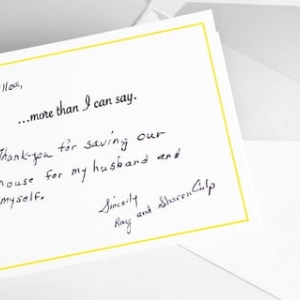 ...more than I can say.
Thank you for saving our
house for my husband and
myself.
Sincerly
Ray and Sharon Culp